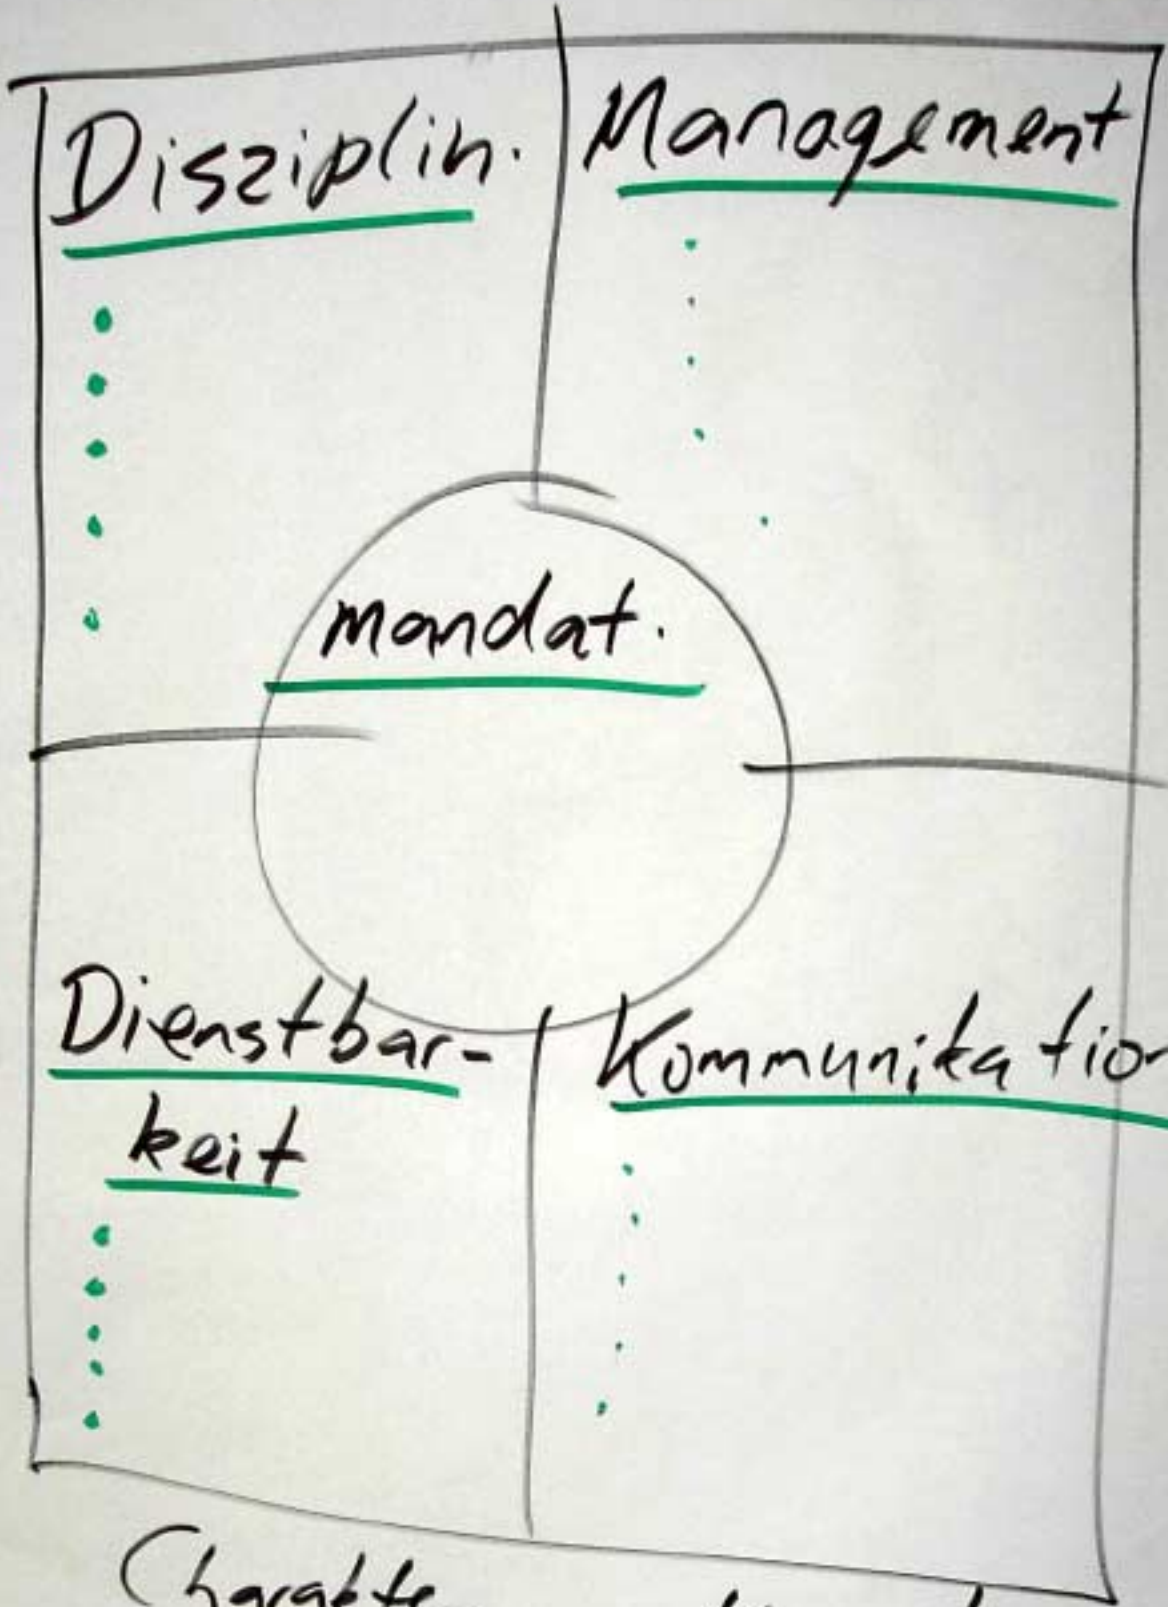 Disziplin.
Management
mandat.
Dienstbar-
keit
Kommunikation